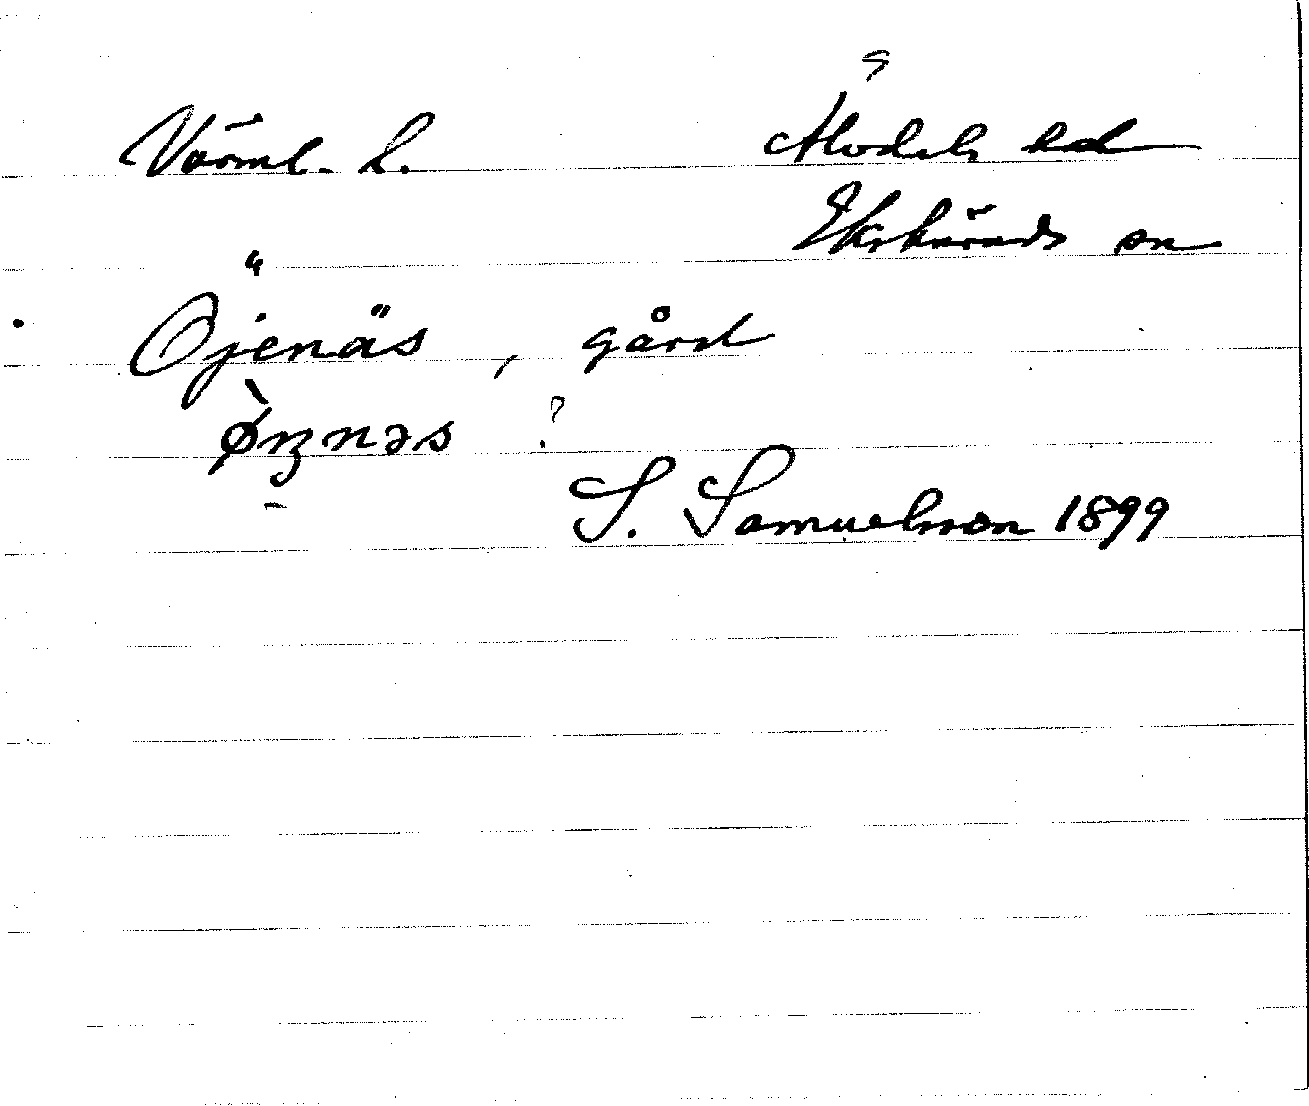 Värml. l. Älvdals hd
Ekshärads sn
Öjenäs, gård
S. Samuelsson 1899